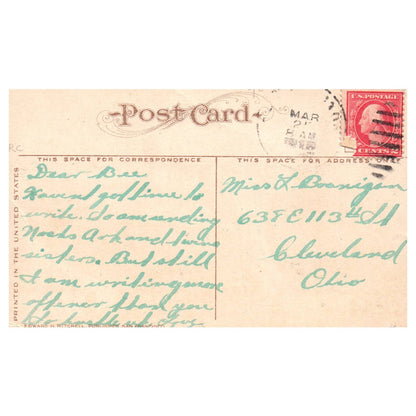 Post Card
MAR
8 AM
U.S. POSTAGE
CENTS
RC
THIS SPACE FOR CORRESPONDENCE
THIS SPACE FOR ADDRESS
PRINTED IN THE UNITED STATES
Dear Bee
Havent got time to
write. So am sending
Noahs Ark and twins
sisters. But still
I am writing more
oftener than you
Miss L. Branigan
638 E 113th St
Cleveland
Ohio
EDWARD H. MITCHELL, PUBLISHER, SAN FRANCISCO